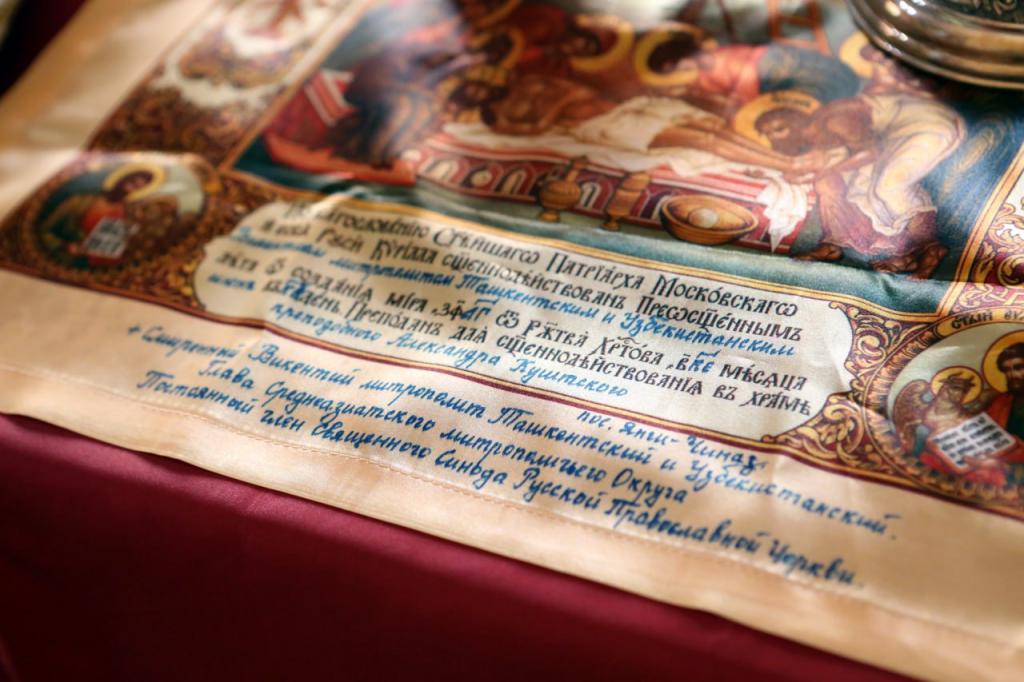 По благословенїю Ст҃ѣйшагѡ Патрїарха Московскагѡ
и всеѧ Рꙋсїи Кѷрилла сщ҃еннодѣйствованъ Преѡсщ҃еннымъ
Викентием митрополитом Ташкентским и Узбекистанским
лѣта ѿ созданїѧ мїра ҂зф҃лг ѿ Рж҃тва Хрⷭ҇това ҂в҃ке мѣсѧца
в день Преподанъ длѧ сщ҃еннодѣйствованїѧ въ храмѣ
преподобного Александра Куштского
пос. Янги-Чиназ.
+ Смиренный Викентий митрополит Ташкентский и Узбекистанский.
Глава Среднеазиатского митрополичьего Округа
Постоянный Член Священного Синода Русской Православной Церкви.